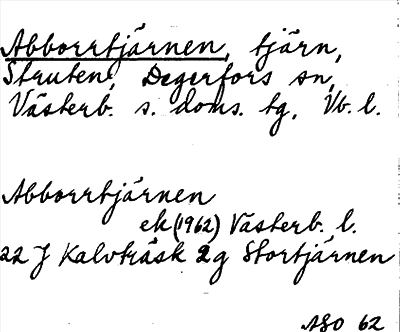 Abborrtjärnen, tjärn,
Struten, Degerfors sn,
Västerb. s. doms. tg, Vb. l.
Abborrtjärnen
ek (1962) Västerb. l.
22 J Kalvträsk 2 g Stortjärnen
ASO 62